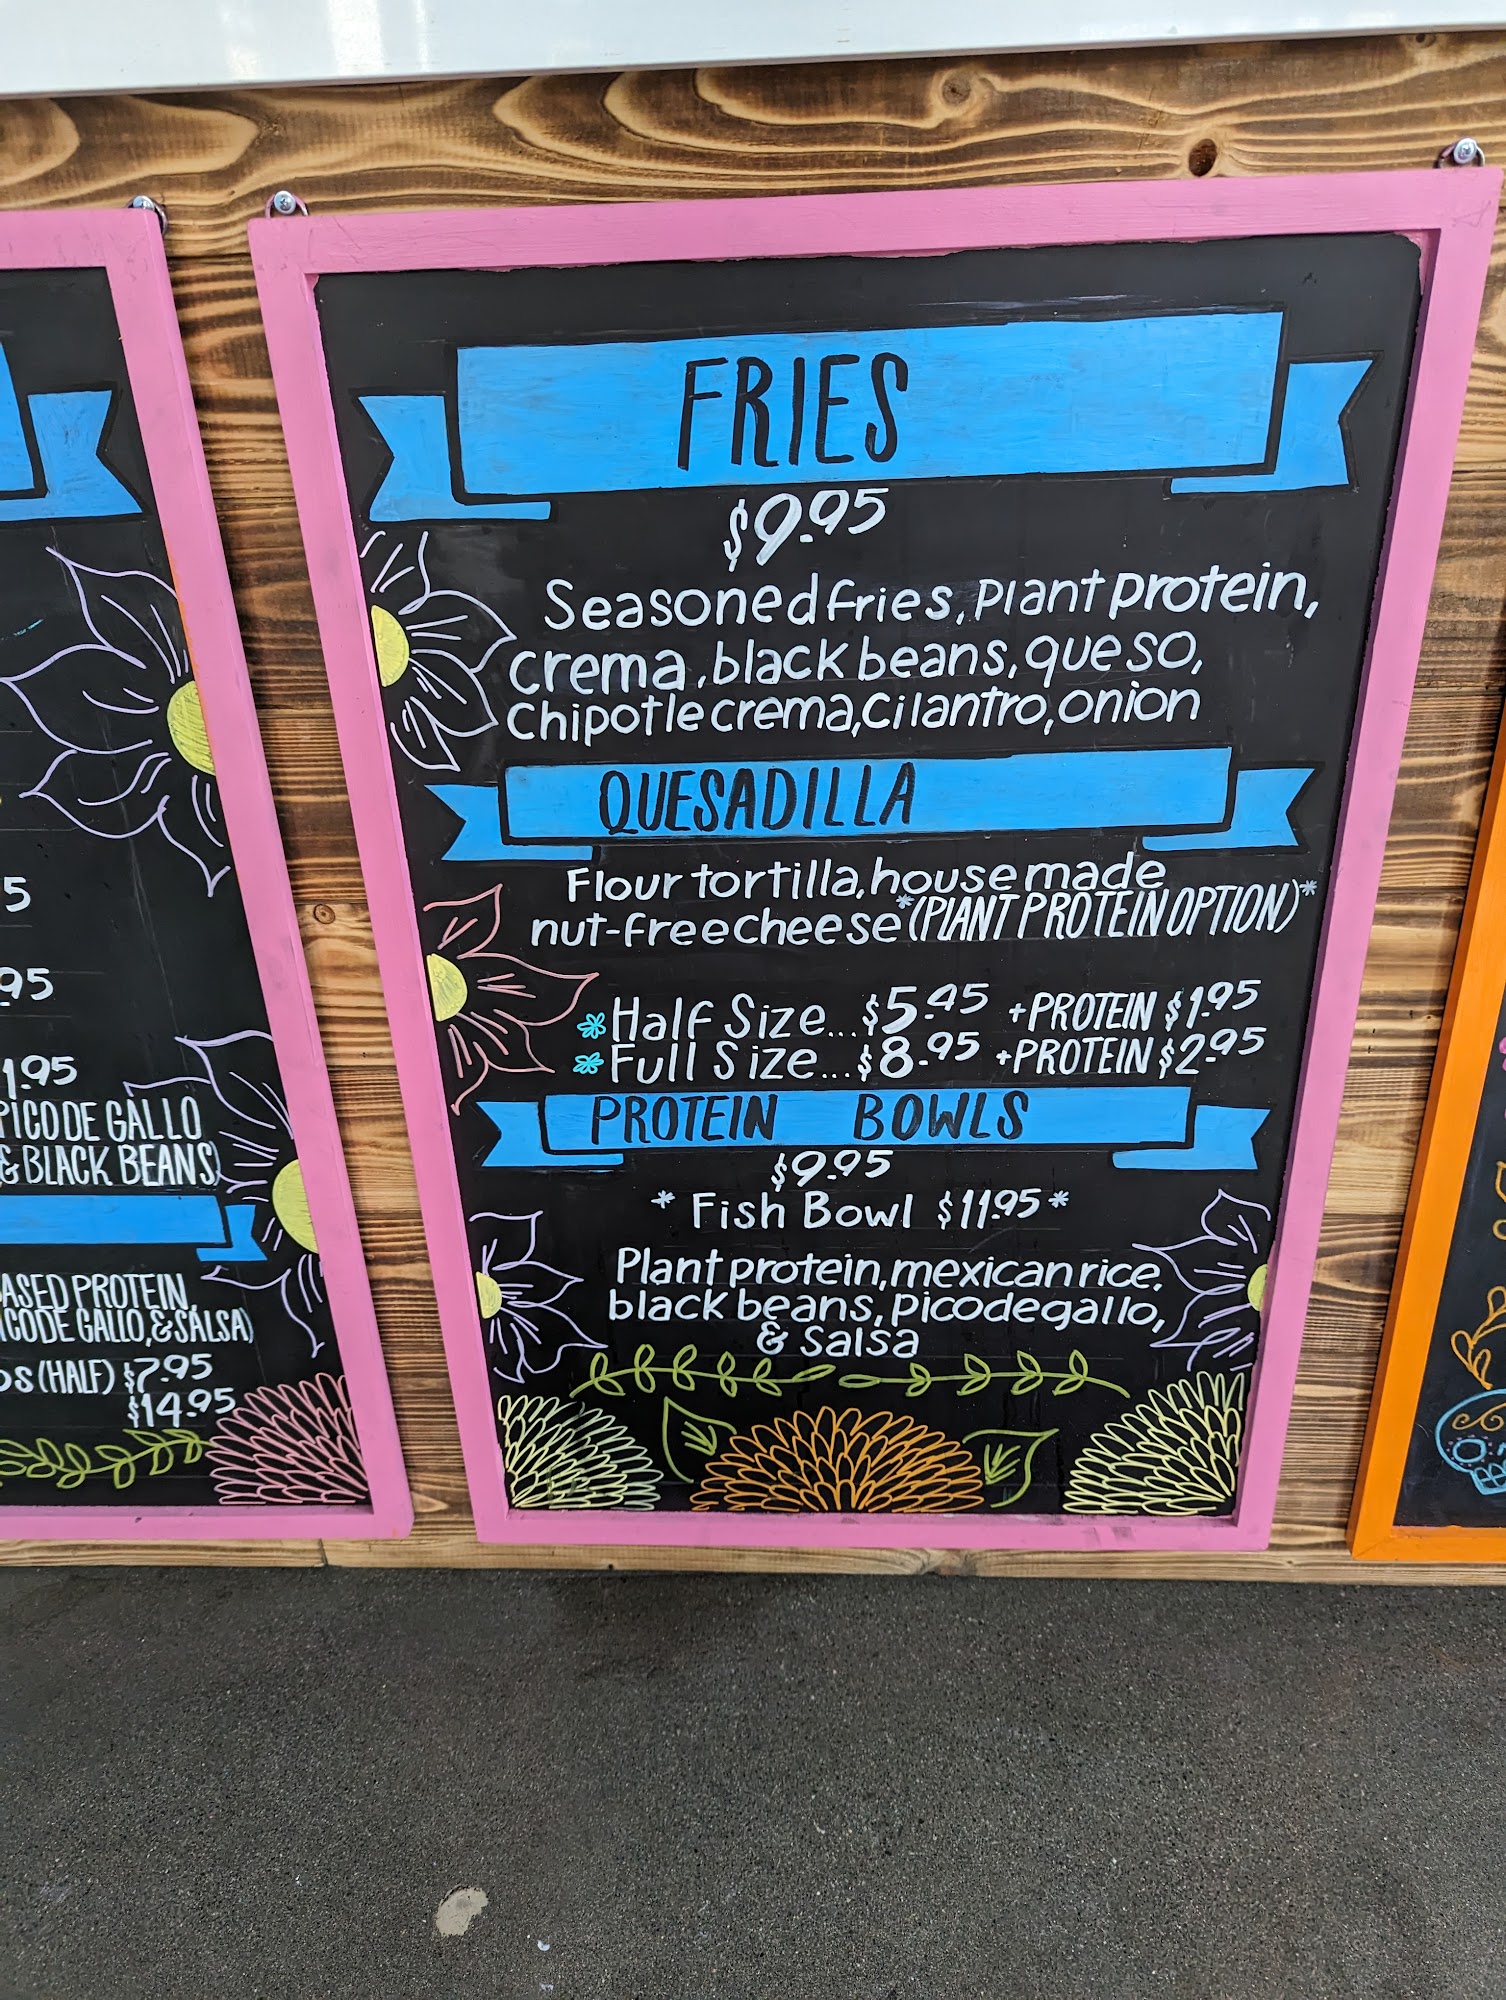 5
95
1.95
PICO DE GALLO
& BLACK BEANS)
ASED PROTEIN,
ICO DE GALLO, & SALSA)
OS (HALF) $7.95
$14.95
FRIES
$9.95
Seasoned fries, Plant protein,
crema, black beans, queso,
Chipotle crema, cilantro, onion
QUESADILLA
Flour tortilla, house made
nut-free cheese *(PLANT PROTEIN OPTION)*
*Half Size... $5.45 +PROTEIN $1.95
*Full Size... $8.95 +PROTEIN $2.95
PROTEIN BOWLS
$9.95
* Fish Bowl $11.95 *
Plant protein, mexican rice,
black beans, pico de gallo,
& salsa